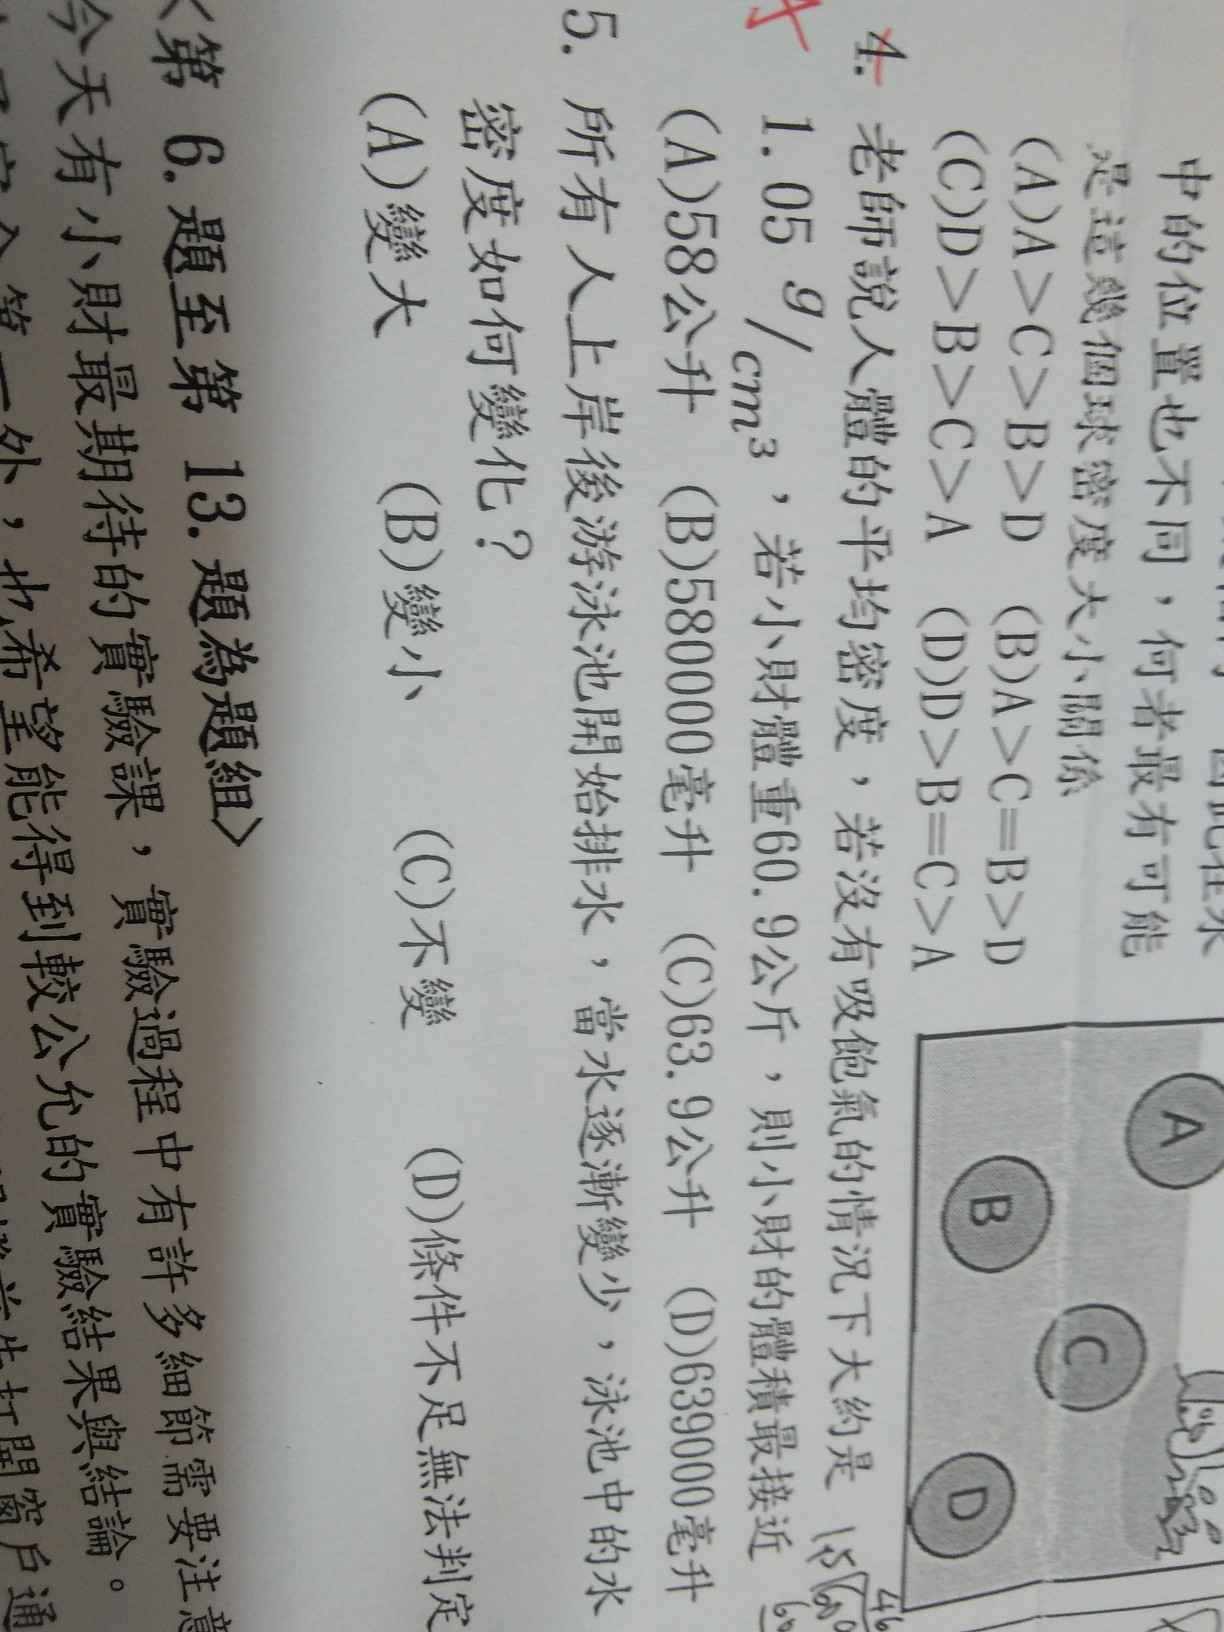 中的位置也不同，何者最有可能
是這幾個球密度大小關係
(A)A＞C＞B＞D (B)A＞C＝B＞D
(C)D＞B＞C＞A (D)D＞B＝C＞A
A
B
C
D
4. 老師說人體的平均密度，若沒有吸飽氣的情況下大約是
1.05 g/cm³，若小財體重60.9公斤，則小財的體積最接近
(A)58公升 (B)580000毫升 (C)63.9公升 (D)639000毫升
5. 所有人上岸後游泳池開始排水，當水逐漸變少，泳池中的水
密度如何變化？
(A)變大 (B)變小 (C)不變 (D)條件不足無法判定
〈第 6. 題至第 13. 題為題組〉
今天有小財最期待的實驗課，實驗過程中有許多細節需要注意
外，也希望能得到較公允的實驗結果與結論。